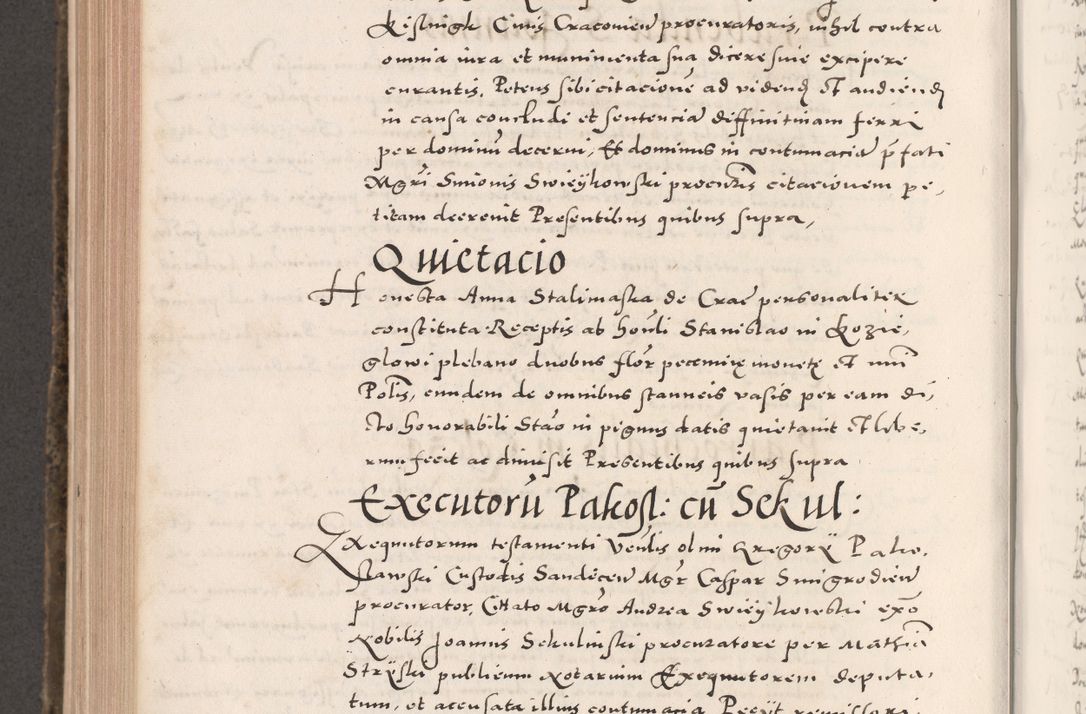 Kislingk Civis Cracovien procuratoris, nihil contra
omnia iura et munimenta sua dicere sive excipere
curantis, Petens sibi citacionē ad videnđ et audienđ
in causa concludi et sentenciā diffinitivam ferri
per dominū decerni, Et dominus in contumaciā p̄fati
Mgr̄i Simonis Swieykowski procūris citacionem pe-
titam decrevit Presentibus quibus supra,
Quietacio
Honesta Anna Stalmaska de Crac̄ personaliter
constituta Receptis ab hon̄li Stanislao in Kozie,
glowi plebano duobus flor̄ pecunię monetę et nūi
Polīs, eundem de omnibus stanneis vasis per eam di-
cto honorabili Stāo in pignus datis quietavit et libe,
rum fecit ac dimisit Presentibus quibus supra
Executorū Pakosl: cū Sekul:
Exequutorum testamenti Ven̄lis olim Gregorÿ Pako,
slawski Custodis Sandecen̄ Mgr̄ Caspar Smigrodien̄
procurator, Citato Mgrō Andrea Swieykowski exō
Nobilis Joannis Sekulinski procuratore per Mathiā
Strÿski publicum Notarium Exequutorem deputa,
tum, et accusata illius contumacia Peciit